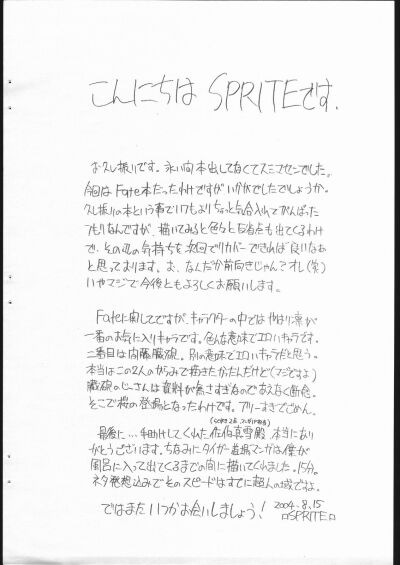 こんにちは SPRITEです.
お久し振りです。永い间本出してなくてスミマセンでした。
今回はFate本だったわけですがいかがでしたでしょうか。
久し振りの本という事でいつもよりちょっと気合入れてがんばった
つもりなんですが、描いてみると色々と 出てくるわけ
で、その 気持ちを次回でリカバーできれば良いなぁ
と思っております。お、なんだか前向きじゃん?オレ(笑)
いやマジで今後ともよろしくお願いします。
Fateに関してですが、キャラクターの中ではやはり凛が
一番のお気に入りキャラです。色んな意味でエロいキャラです。
二番目は 臓硯。別の意味でエロいキャラだと思う。
本当はこの2人のからみで描きたかったんだけど(マジですよ)
臓硯のじーさんは資料が無さすぎなのであえなく断念。
そこで桜の登場となったわけです。アリーすぎてごめん。
最後に…手助けしてくれた佐伯真雪殿 本当にあり
がとうございます。ちなみにタイガー道場マンガは僕が
風呂に入って出てくるまでの間に描いてくれました。15分。
ネタ発想込みでそのスピードはすでに超人の域ですよ。
ではまたいつかお会いしましょう! 2004.8.15
□SPRITE□